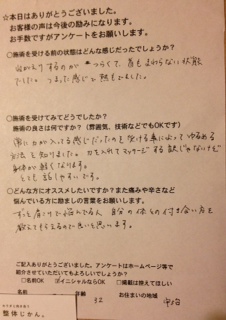 ☆本日はありがとうございました。
お客様の声は今後の励みになります。
お手数ですがアンケートをお願いします。
○施術を受ける前の状態はどんな感じだったでしょうか？
起き上がりするのが つらくて、首もまわらない状態
でした。つまった感じと熱もでました。
○施術を受けてみてどうでしたか？
施術の良さは何ですか？（雰囲気、技術などでもOKです）
常に力が入ってる感じだったのを受ける事によってゆるめる
方法を知りました。力を入れてマッサージする訳じゃないけど
身体が軽くなります。
とても話しやすいです。
○どんな方にオススメしたいですか？また痛みや辛さなど
悩んでいる方に励ましの言葉をお願いします。
ずっと肩こりで悩んでる人 自分の体との付き合い方を
教えてくれるので良いと思います。
ご記入ありがとうございます。アンケートはホームページ等で
紹介させていただいてもよろしいでしょうか？
□名前OK ☑イニシャルならOK □掲載は控えてほしい
名前 年齢 32 お住まいの地域
整体じかん。